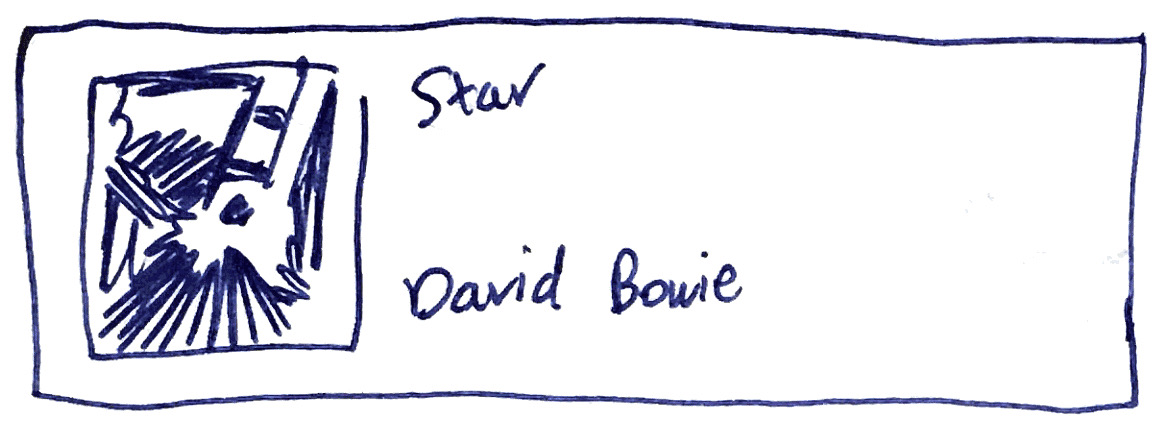 Star
David Bowie